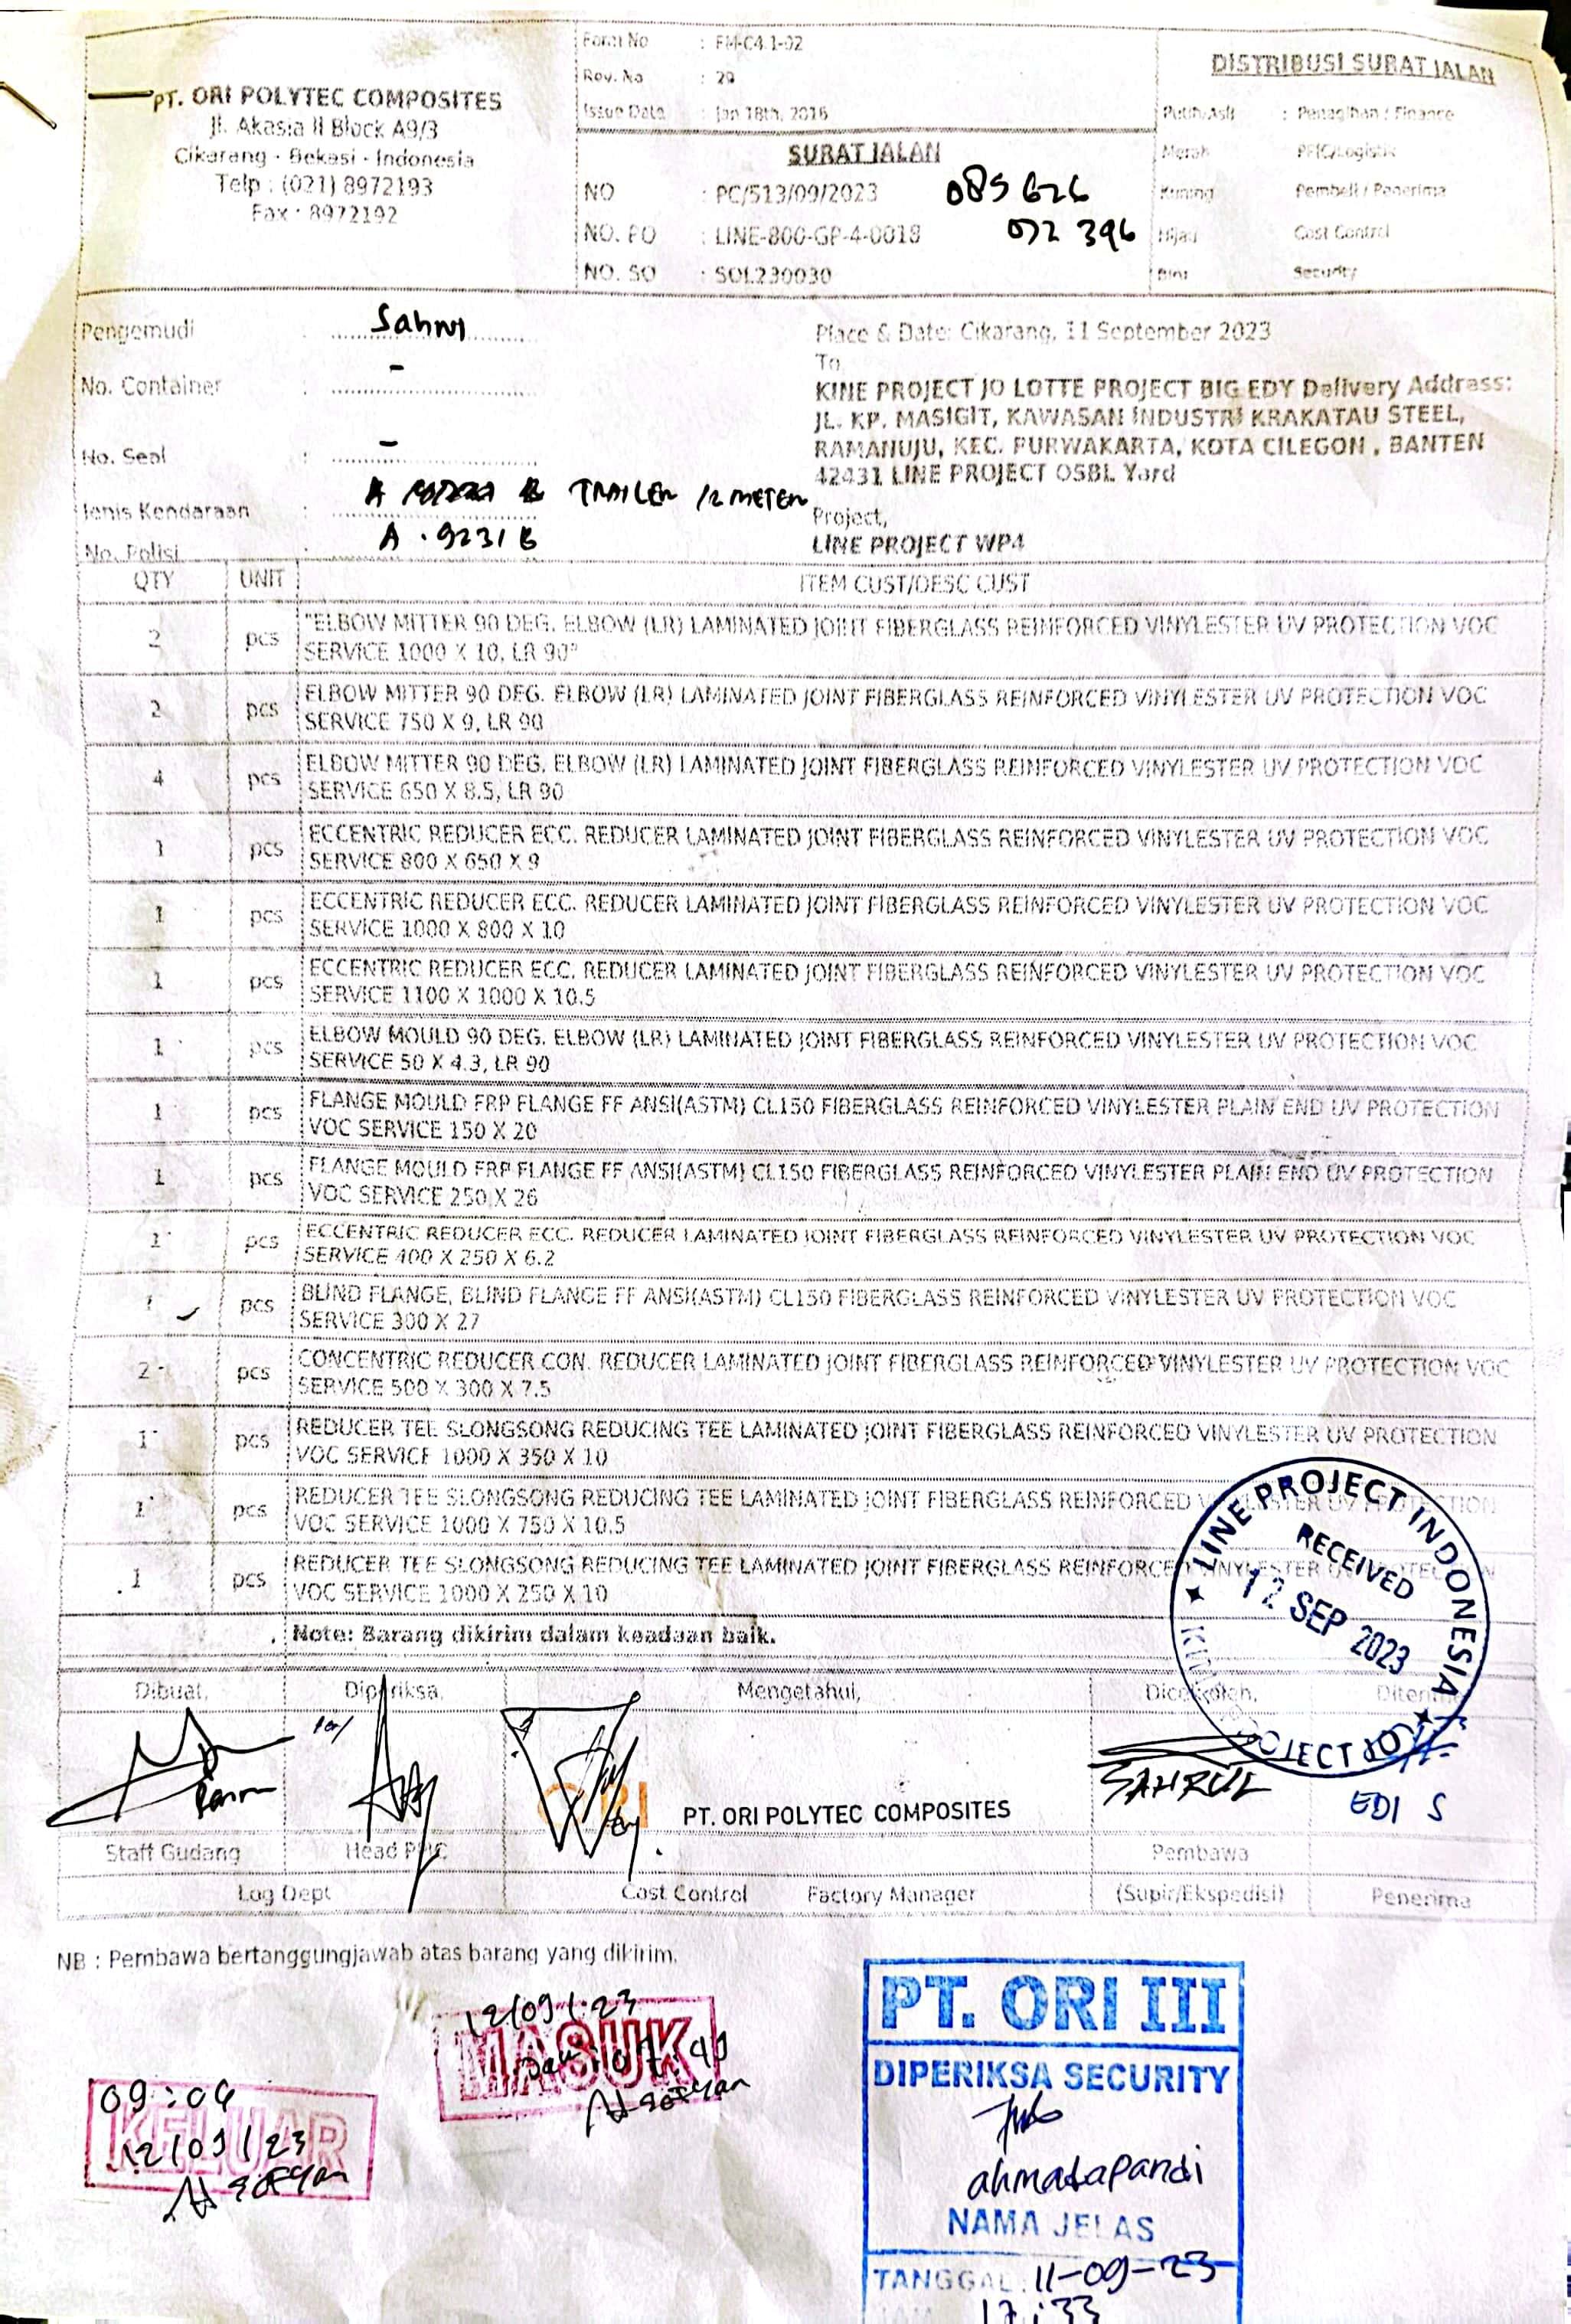 PT. ORI POLYTEC COMPOSITES
Jl. Akasia II Block A9/3
Cikarang - Bekasi - Indonesia
Telp : (021) 8972193
Fax : 8972192
Form No : FM-C4.1-02
Rev. No : 29
Issue Date : Jan 18th, 2016
SURAT JALAN
NO : PC/513/09/2023
085626
NO. PO : LINE-800-GP-4-0018
072 396
NO. SO : SOL230030
DISTRIBUSI SURAT JALAN
Putih/Asli : Penagihan / Finance
Merah PPIC/Logistic
Kuning Pembeli / Penerima
Hijau Cost Control
Biru Security
Pengemudi :
No. Container : -
No. Seal : -
Jenis Kendaraan : TRAILER 12 METER
No. Polisi : A . 9231 B
Place & Date: Cikarang, 11 September 2023
To
KINE PROJECT JO LOTTE PROJECT BIG EDY Delivery Address:
JL. KP. MASIGIT, KAWASAN INDUSTRI KRAKATAU STEEL,
RAMANUJU, KEC. PURWAKARTA, KOTA CILEGON , BANTEN
42431 LINE PROJECT OSBL Yard
Project,
LINE PROJECT WP4
QTY UNIT ITEM CUST/DESC CUST
2 pcs "ELBOW MITTER 90 DEG. ELBOW (LR) LAMINATED JOINT FIBERGLASS REINFORCED VINYLESTER UV PROTECTION VOC
SERVICE 1000 X 10, LR 90"
2 pcs ELBOW MITTER 90 DEG. ELBOW (LR) LAMINATED JOINT FIBERGLASS REINFORCED VINYLESTER UV PROTECTION VOC
SERVICE 750 X 9, LR 90
4 pcs ELBOW MITTER 90 DEG. ELBOW (LR) LAMINATED JOINT FIBERGLASS REINFORCED VINYLESTER UV PROTECTION VOC
SERVICE 650 X 8.5, LR 90
1 pcs ECCENTRIC REDUCER ECC. REDUCER LAMINATED JOINT FIBERGLASS REINFORCED VINYLESTER UV PROTECTION VOC
SERVICE 800 X 650 X 9
1 pcs ECCENTRIC REDUCER ECC. REDUCER LAMINATED JOINT FIBERGLASS REINFORCED VINYLESTER UV PROTECTION VOC
SERVICE 1000 X 800 X 10
1 pcs ECCENTRIC REDUCER ECC. REDUCER LAMINATED JOINT FIBERGLASS REINFORCED VINYLESTER UV PROTECTION VOC
SERVICE 1100 X 1000 X 10.5
1 pcs ELBOW MOULD 90 DEG. ELBOW (LR) LAMINATED JOINT FIBERGLASS REINFORCED VINYLESTER UV PROTECTION VOC
SERVICE 50 X 4.3, LR 90
1 pcs FLANGE MOULD FRP FLANGE FF ANSI(ASTM) CL150 FIBERGLASS REINFORCED VINYLESTER PLAIN END UV PROTECTION
VOC SERVICE 150 X 20
1 pcs FLANGE MOULD FRP FLANGE FF ANSI(ASTM) CL150 FIBERGLASS REINFORCED VINYLESTER PLAIN END UV PROTECTION
VOC SERVICE 250 X 26
1 pcs ECCENTRIC REDUCER ECC. REDUCER LAMINATED JOINT FIBERGLASS REINFORCED VINYLESTER UV PROTECTION VOC
SERVICE 400 X 250 X 6.2
1 pcs BLIND FLANGE, BLIND FLANGE FF ANSI(ASTM) CL150 FIBERGLASS REINFORCED VINYLESTER UV PROTECTION VOC
SERVICE 300 X 27
2 pcs CONCENTRIC REDUCER CON. REDUCER LAMINATED JOINT FIBERGLASS REINFORCED VINYLESTER UV PROTECTION VOC
SERVICE 500 X 300 X 7.5
1 pcs REDUCER TEE SLONGSONG REDUCING TEE LAMINATED JOINT FIBERGLASS REINFORCED VINYLESTER UV PROTECTION
VOC SERVICE 1000 X 350 X 10
1 pcs REDUCER TEE SLONGSONG REDUCING TEE LAMINATED JOINT FIBERGLASS REINFORCED VINYLESTER UV PROTECTION
VOC SERVICE 1000 X 750 X 10.5
1 pcs REDUCER TEE SLONGSONG REDUCING TEE LAMINATED JOINT FIBERGLASS REINFORCED VINYLESTER UV PROTECTION
VOC SERVICE 1000 X 250 X 10
Note: Barang dikirim dalam keadaan baik.
LINE PROJECT INDONESIA
RECEIVED
12 SEP 2023
KINE PROJECT JO
Dibuat, Diperiksa, Mengetahui, Dicek oleh, Diterima
ORI PT. ORI POLYTEC COMPOSITES
SAHRUL
EDI S
Staff Gudang Head PPIC Pembawa
Log Dept Cost Control Factory Manager (Supir/Ekspedisi) Penerima
NB : Pembawa bertanggungjawab atas barang yang dikirim.
12/09/23
MASUK
09:04
KELUAR
12/09/23
PT. ORI III
DIPERIKSA SECURITY
ahmadapandi
NAMA JELAS
TANGGAL : 11-09-23
JAM 17:33